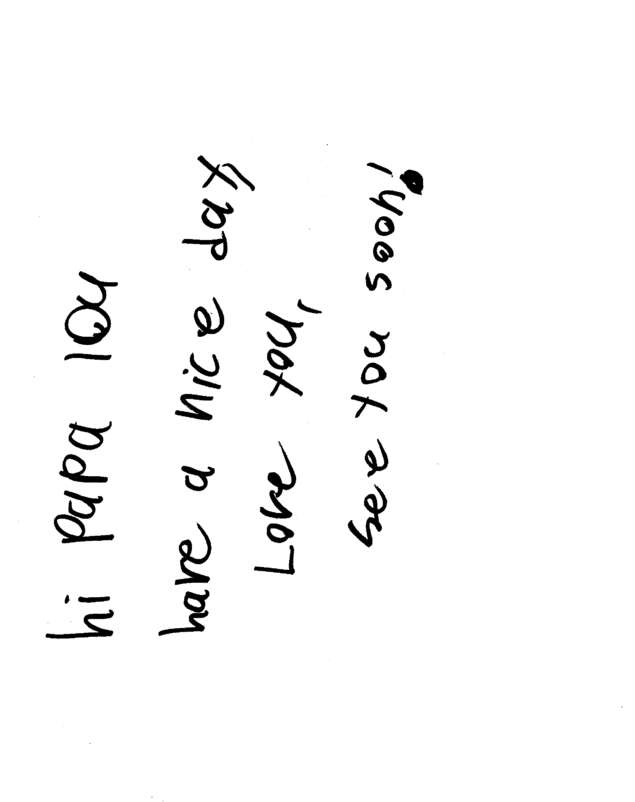 hi papa lou
have a nice day,
Love you,
see you soon!